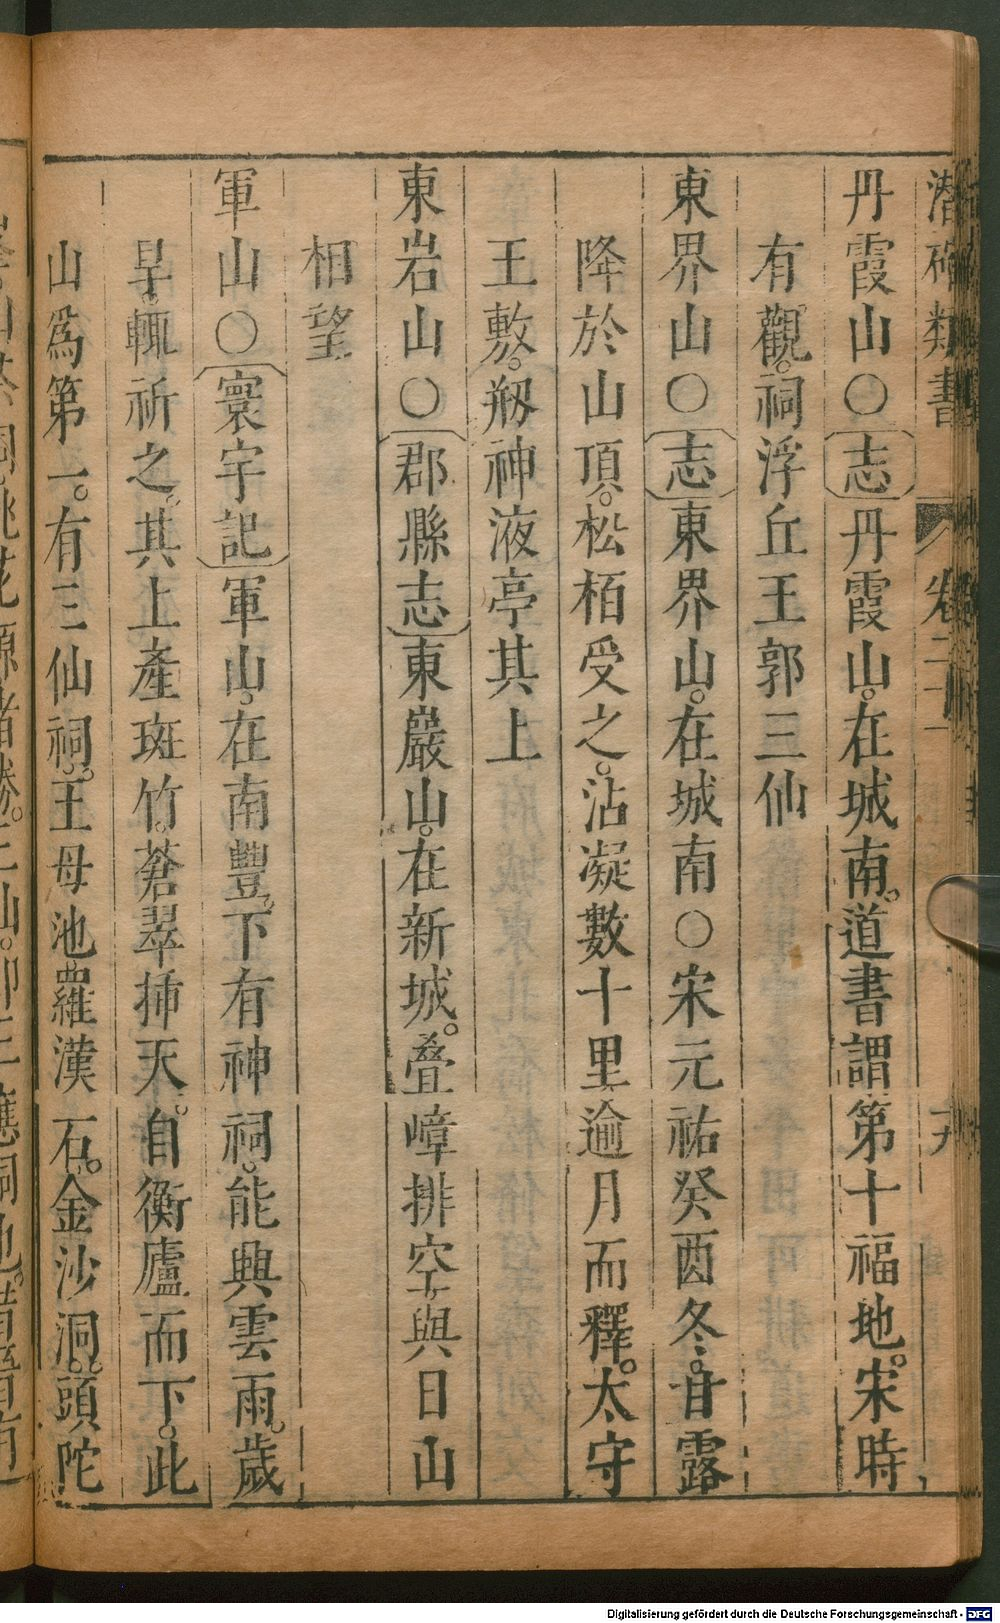 潛確類書 卷二十一 十九
丹霞山〇志丹霞山。在城南。道書謂第十福地。宋時
有觀。祠浮丘王郭三仙
東界山〇志東界山。在城南〇宋元祐癸酉冬。甘露
降於山頂。松栢受之。沾凝數十里逾月而釋。太守
王敷。剏神液亭其上
東岩山〇郡縣志東巖山。在新城。叠嶂排空與日山
相望
軍山〇寰宇記軍山。在南豐。下有神祠。能興雲雨。歲
旱輒祈之。其上產斑竹。蒼翠揷天。自衡廬而下。此
山爲第一。有三仙祠。王母池羅漢石。金沙洞。頭陀
Digitalisierung gefördert durch die Deutsche Forschungsgemeinschaft - DFG